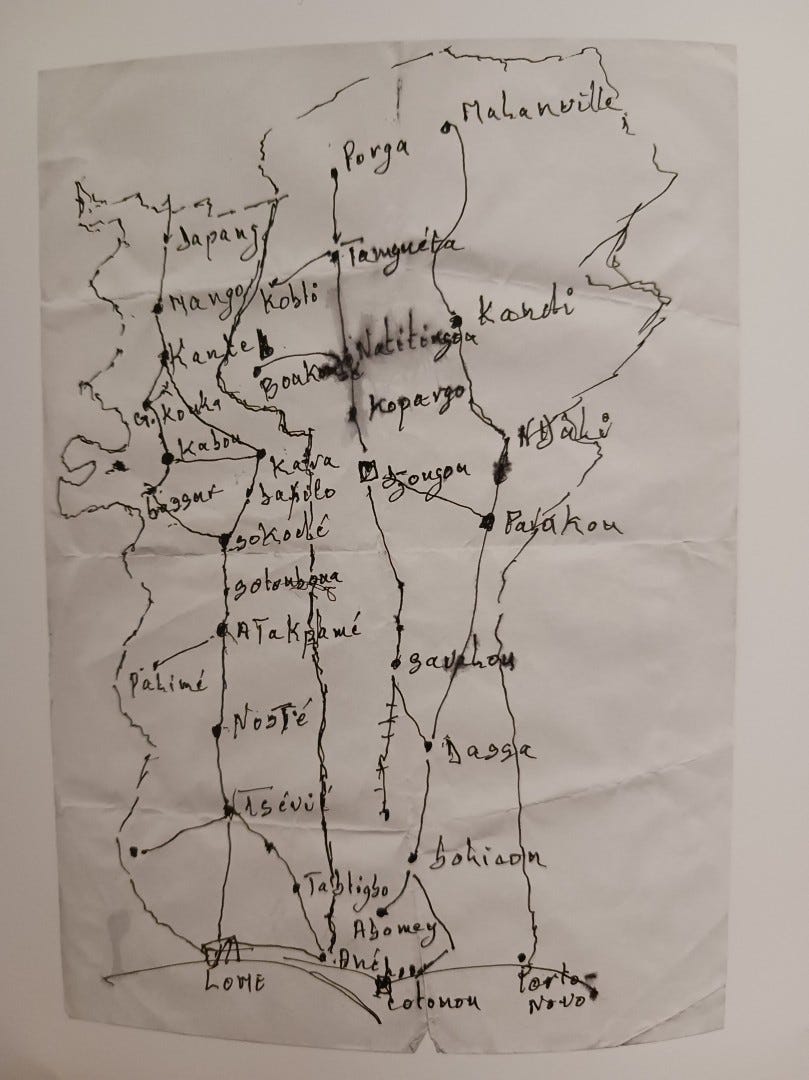 Malanville
Porga
Dapang
Tanguéta
Mango
Kobli
Kandi
Kante
Natitingou
Boukou
Kopargo
G. Kouka
NDàli
Kabou
Kara
Djougou
bafilo
bassar
Parakou
sokodé
sotouboua
ATakpamé
savalou
Palimé
NOSTé
Dassa
Tsévié
bohicon
Tabligbo
Abomey
Aného
LOME
Cotonou
Porto-
NOVO